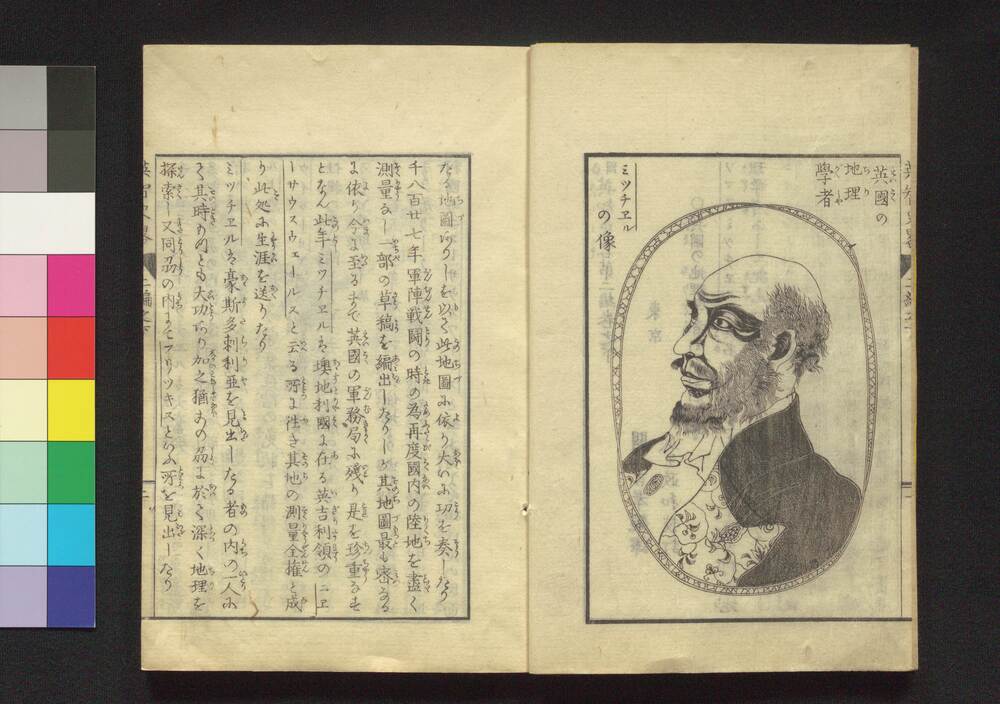 英國の
地理
學者
ミツチヱル
の像
たる地圖ありしを以て此地圖に依り大いに功を奏したり
千八百廿七年軍陣戰闘の時の為再度國内の陸地を盡く
測量なし一部の草稿を編出したりしが其地圖最も密なる
に依り今に至るまで英國の軍務局に殘り是を珍重なす
となん此年ミツチヱルは墺地利國に在る英吉利領のニユ
ーサウスウェールスと云る所に往き其地の測量全権と成
り此処に生涯を送りたり
ミツチヱルは豪斯多剌利亜を見出したる者の内の一人に
て其時ものとも大功あり加之猶あの島に於て深く地理を
探索し又同島の内にてフリツキスといふ所を見出したり